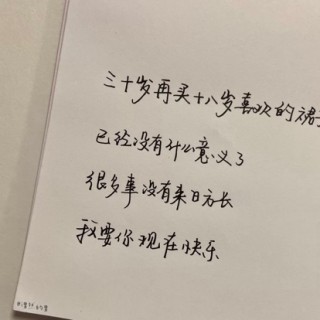 三十岁再买十八岁喜欢的裙
已经没有什么意义了
很多事没有来日方长
我要你现在快乐